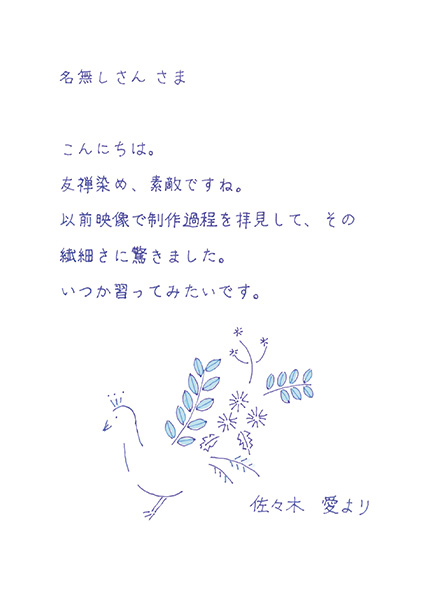 名無しさん さま
こんにちは。
友禅染め、素敵ですね。
以前映像で制作過程を拝見して、その
繊細さに驚きました。
いつか習ってみたいです。
佐々木 愛より